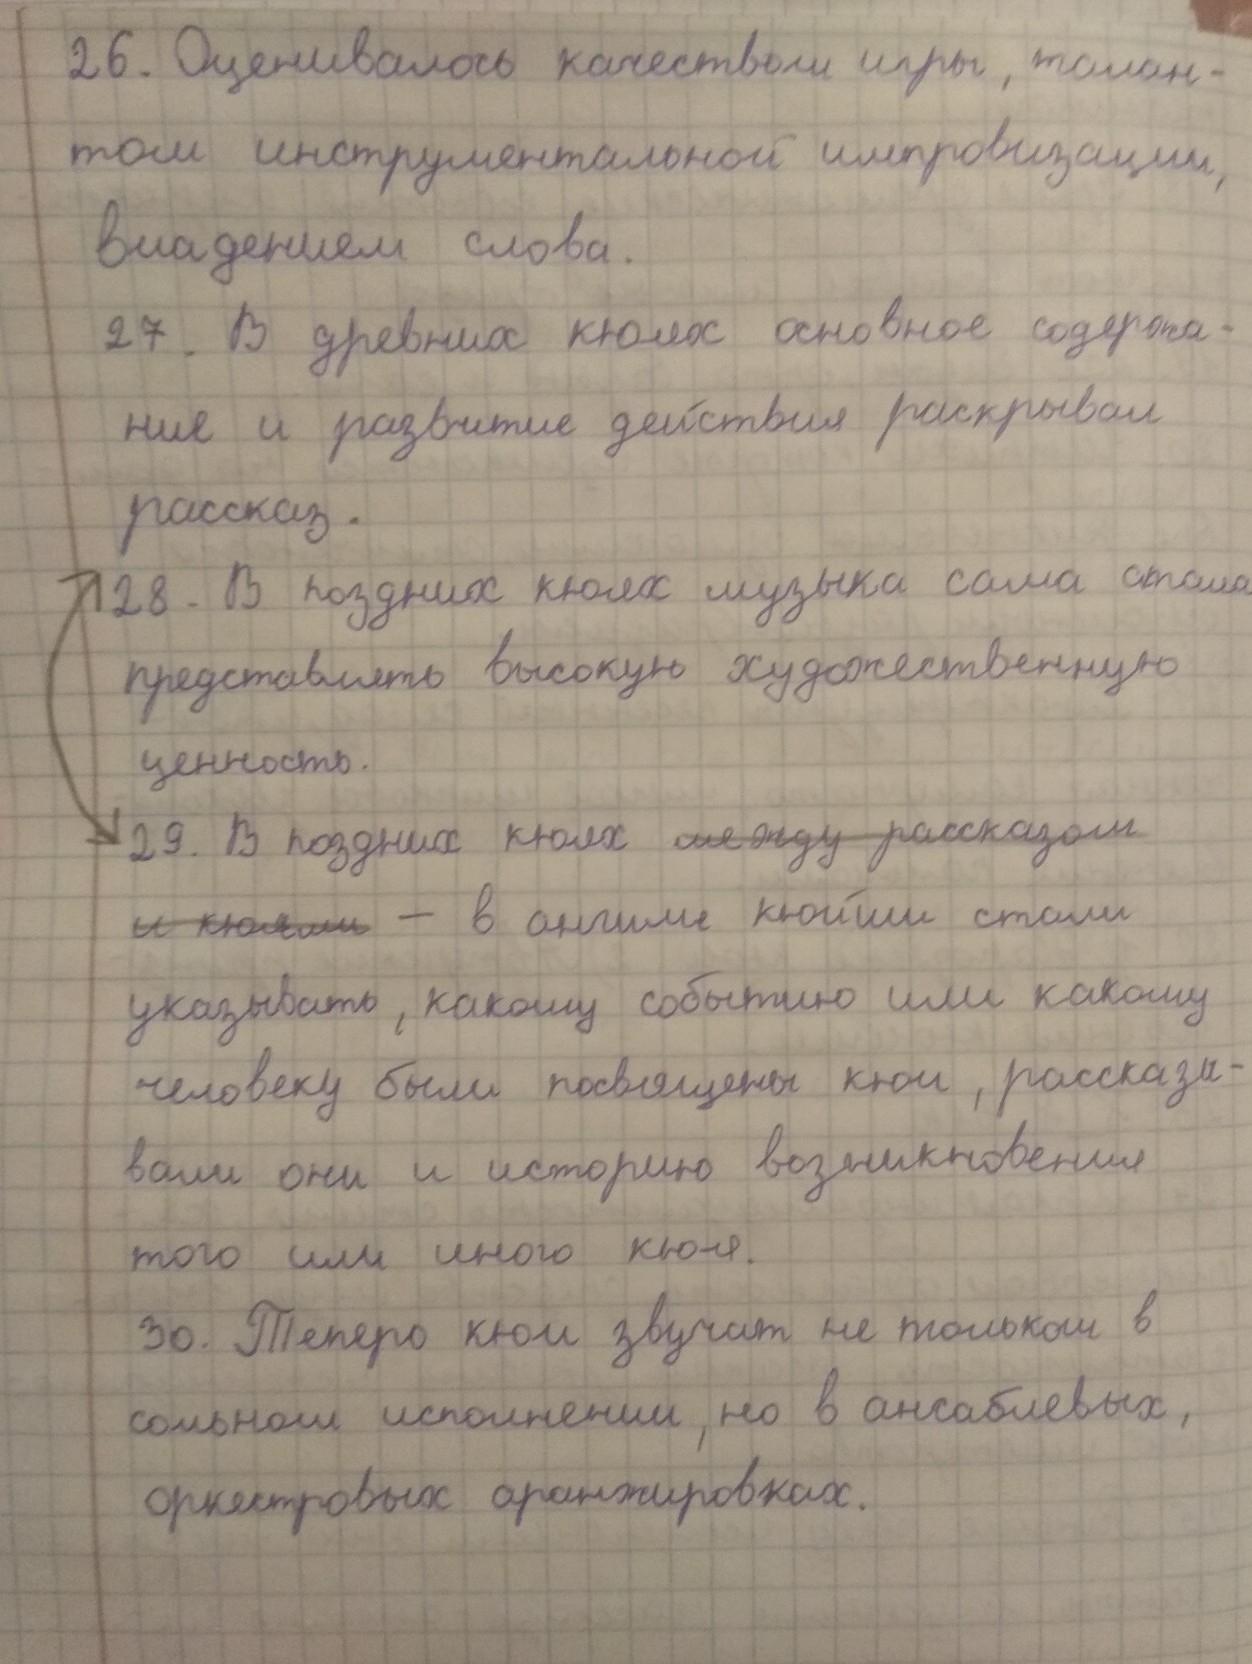 26. Оценивалось качеством игры, талан-
том инструментальной импровизации,
владением слова.
27. В древних кюях основное содержа-
ние и развитие действия раскрывал
рассказ.
28. В поздних кюях музыка сама стала
представлять высокую художественную
ценность.
29. В поздних кюях между рассказом
и кюями – в ангиме кюйши стали
указывать, какому событию или какому
человеку были посвящены кюи, рассказы-
вали они и историю возникновения
того или иного кюя.
30. Теперь кюи звучат не только в
сольном исполнении, но в ансаблевых,
оркестровых аранжировках.